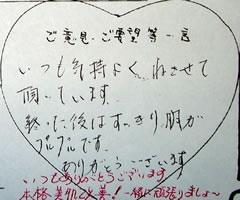 ご意見・ご要望等一言
いつも気持よくねさせて
頂いています。
終った後はすっきり、肌が
プルプルです。
ありがとうございます
いつもありがとうございます
本格美肌改善！一緒に頑張りましょ～